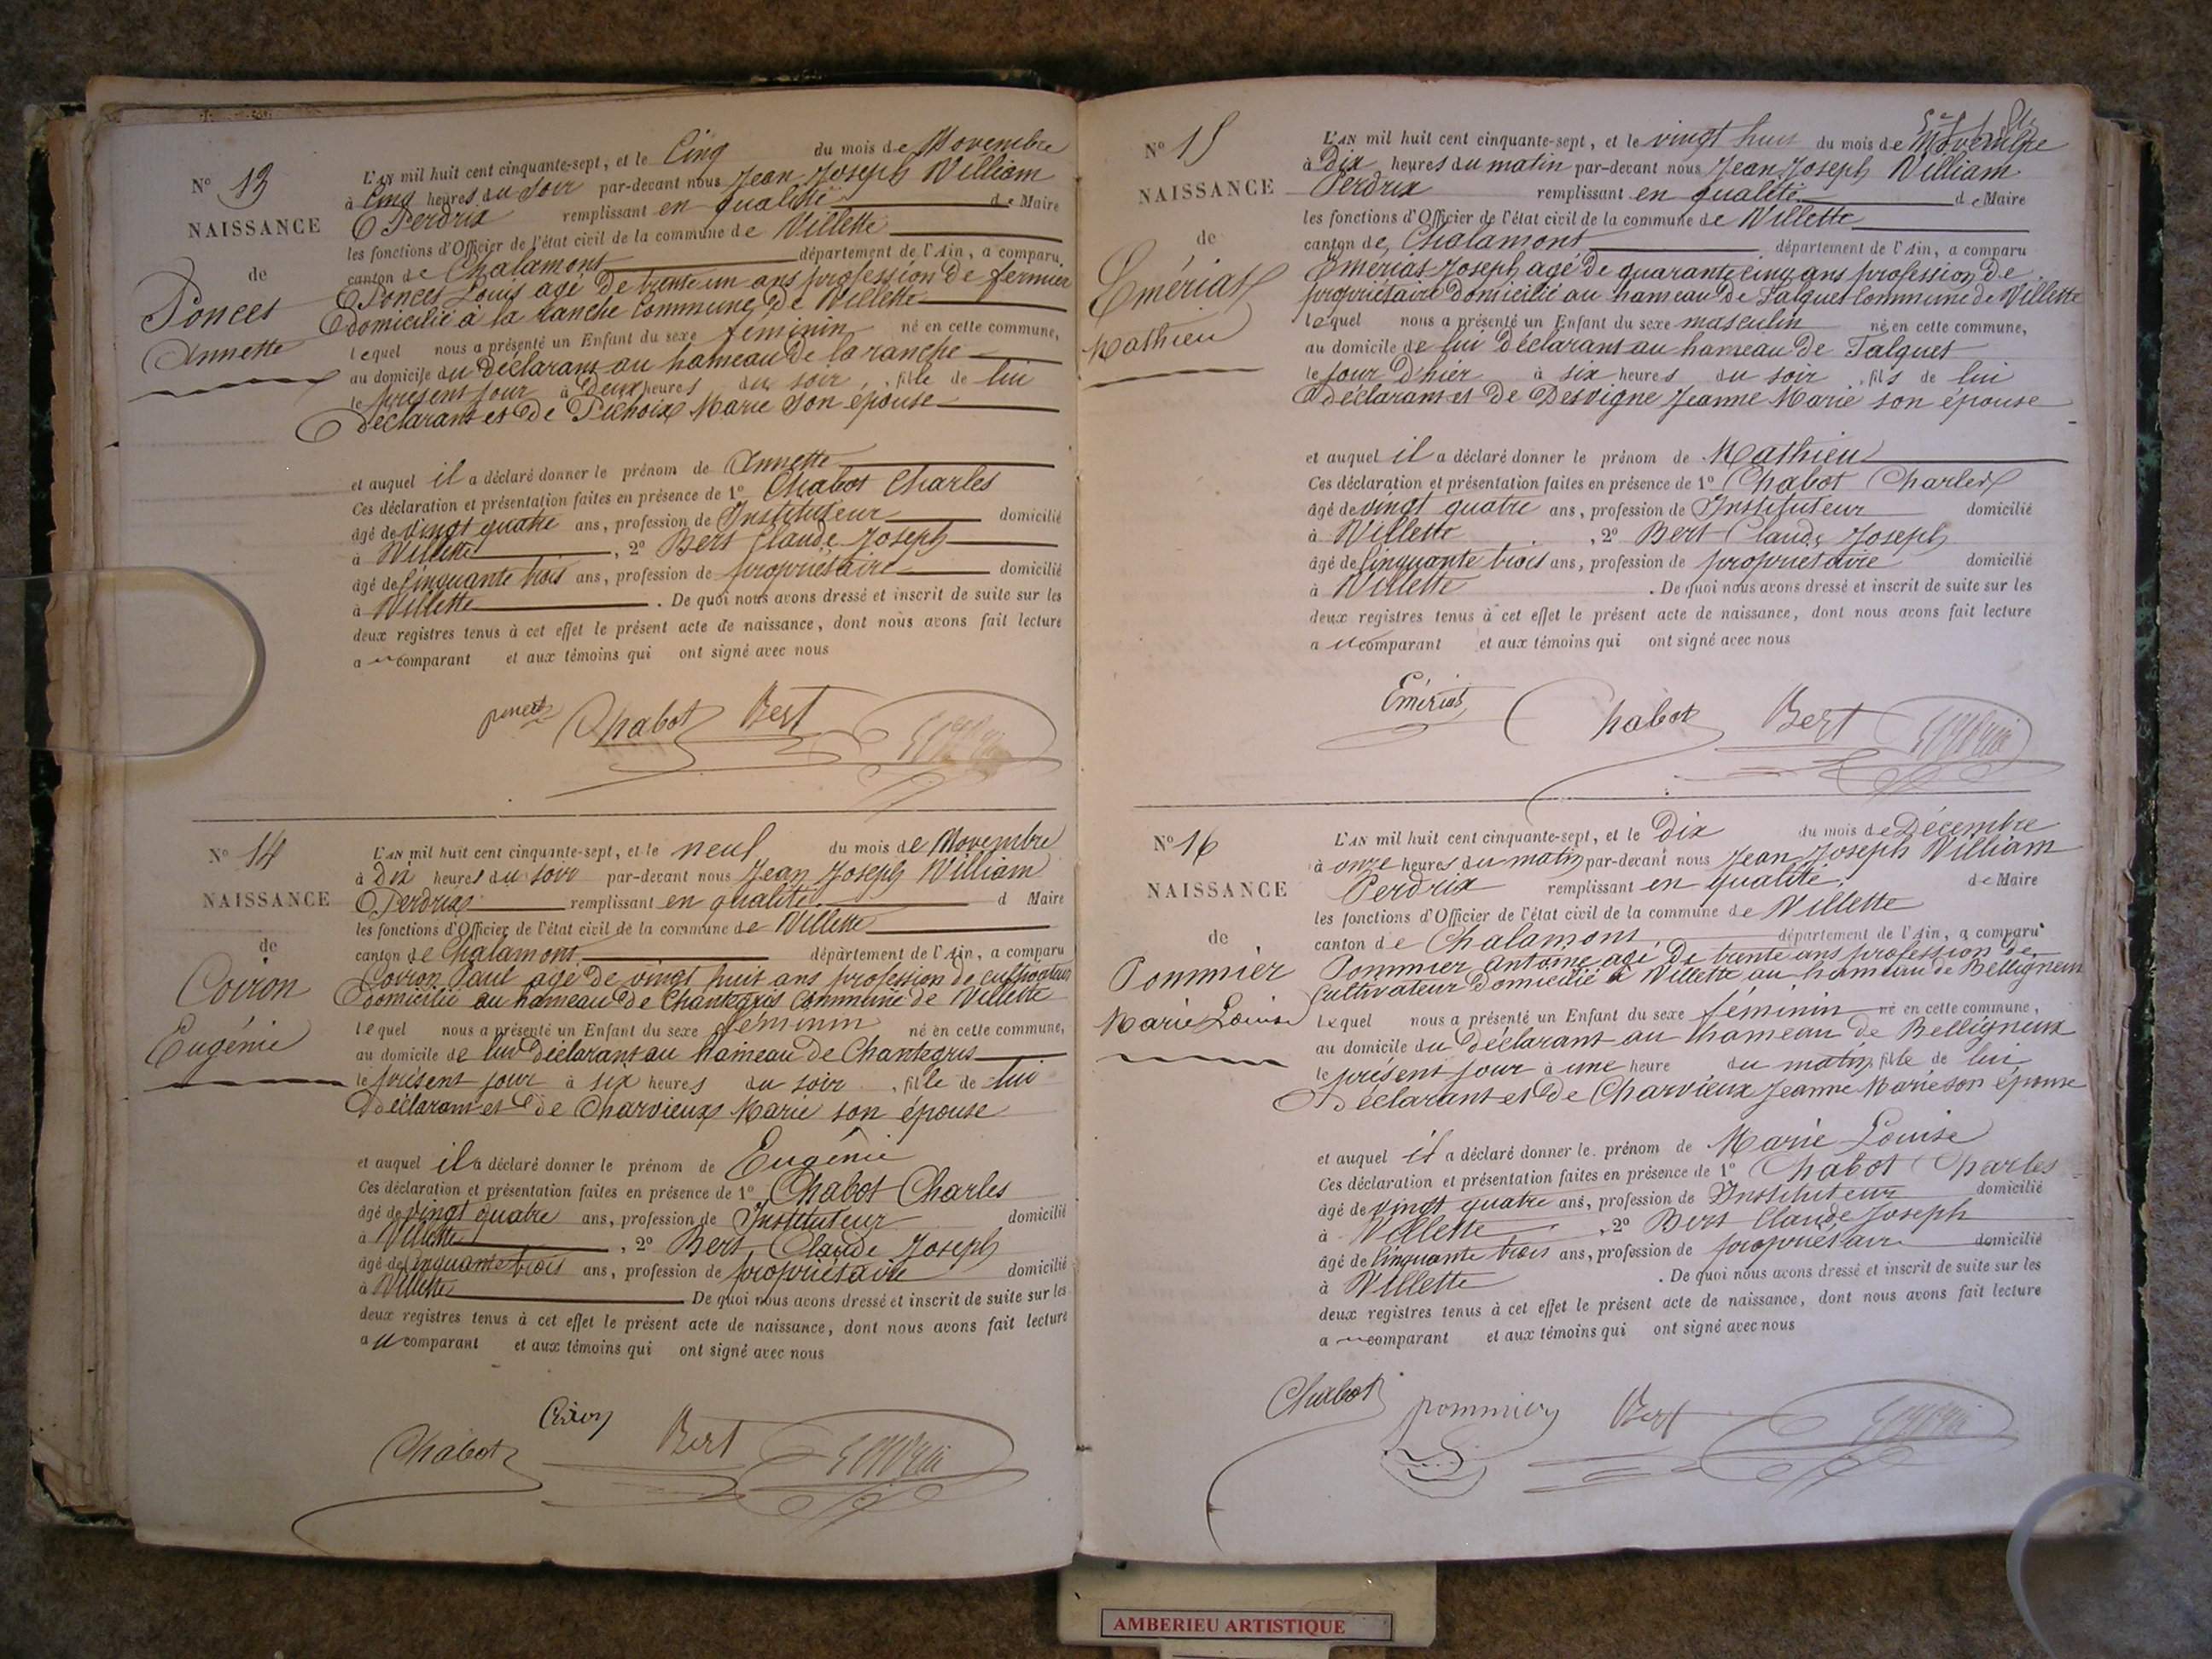 N° 13
NAISSANCE
de
Ponces
Annette
L'AN mil huit cent cinquante-sept, et le Cinq du mois de Novembre
à Cinq heures du Soir par-devant nous Jean Joseph William
Perdrix remplissant en qualité de Maire
les fonctions d'Officier de l'état civil de la commune de Villette
canton de Chalamont département de l'Ain, a comparu
Ponces Louis agé De trente un ans profession De fermier
domicilié à la ranche Commune De Villette
lequel nous a présenté un Enfant du sexe féminin né en cette commune,
au domicile du Déclarant au hameau De la ranche
le présent jour à Deux heures du soir, fille de lui
Déclarant et De Pichoix Marie son épouse
et auquel il a déclaré donner le prénom de Annette
Ces déclaration et présentation faites en présence de 1° Chabot Charles
âgé de vingt quatre ans, profession de Instituteur domicilié
à Villette, 2° Bert Claude Joseph
âgé de Cinquante trois ans, profession de propriétaire domicilié
à Villette. De quoi nous avons dressé et inscrit de suite sur les
deux registres tenus à cet effet le présent acte de naissance, dont nous avons fait lecture
au comparant et aux témoins qui ont signé avec nous
ponces Chabot Bert Perdrix
N° 14
NAISSANCE
de
Coiron
Eugénie
L'AN mil huit cent cinquante-sept, et le neuf du mois de Novembre
à Dix heures du soir par-devant nous Jean Joseph William
Perdrix remplissant en qualité d Maire
les fonctions d'Officier de l'état civil de la commune de Villette
canton de Chalamont département de l'Ain, a comparu
Coiron Paul agé De vingt huit ans profession de cultivateur
domicilié au hameau De Chantegris Commune de Villette
lequel nous a présenté un Enfant du sexe féminin né en cette commune,
au domicile de lui Déclarant au hameau De Chantegris
le présent jour à six heures du soir, fille de lui
Déclarant et De Charvieux Marie son épouse
et auquel il a déclaré donner le prénom de Eugénie
Ces déclaration et présentation faites en présence de 1° Chabot Charles
âgé de vingt quatre ans, profession de Instituteur domicilié
à Villette, 2° Bert Claude Joseph
âgé de Cinquante trois ans, profession de propriétaire domicilié
à Villette De quoi nous avons dressé et inscrit de suite sur les
deux registres tenus à cet effet le présent acte de naissance, dont nous avons fait lecture
au comparant et aux témoins qui ont signé avec nous
Coiron
Chabot Bert Perdrix
N° 15
NAISSANCE
de
Emériat
Mathieu
L'AN mil huit cent cinquante-sept, et le vingt huit du mois de Novembre
à Dix heures du matin par-devant nous Jean Joseph William
Perdrix remplissant en qualité de Maire
les fonctions d'Officier de l'état civil de la commune de Villette
canton de Chalamont département de l'Ain, a comparu
Emériat Joseph agé De quarante cinq ans profession De
propriétaire Domicilié au hameau De Talguet Commune de Villette
lequel nous a présenté un Enfant du sexe masculin né en cette commune,
au domicile de lui Déclarant au hameau De Talguet
le jour D'hier à six heures du soir, fils de lui
déclarant et De Desvigne Jeanne Marie son épouse
et auquel il a déclaré donner le prénom de Mathieu
Ces déclaration et présentation faites en présence de 1° Chabot Charles
âgé de vingt quatre ans, profession de Instituteur domicilié
à Villette, 2° Bert Claude Joseph
âgé de Cinquante trois ans, profession de propriétaire domicilié
à Villette. De quoi nous avons dressé et inscrit de suite sur les
deux registres tenus à cet effet le présent acte de naissance, dont nous avons fait lecture
au comparant et aux témoins qui ont signé avec nous
Emériat Chabot Bert Perdrix
N° 16
NAISSANCE
de
Pommier
Marie Louise
L'AN mil huit cent cinquante-sept, et le Dix du mois de Décembre
à onze heures du matin par-devant nous Jean Joseph William
Perdrix remplissant en qualité de Maire
les fonctions d'Officier de l'état civil de la commune de Villette
canton de Chalamont département de l'Ain, a comparu
Pommier Antoine agé De trente ans profession De
Cultivateur Domicilié à Villette au hameau de Belligneux
lequel nous a présenté un Enfant du sexe féminin né en cette commune,
au domicile du Déclarant au hameau de Belligneux
le présent jour à une heure du matin, fille de lui
Déclarant et De Charvieux Jeanne Marie son épouse
et auquel il a déclaré donner le prénom de Marie Louise
Ces déclaration et présentation faites en présence de 1° Chabot Charles
âgé de vingt quatre ans, profession de Instituteur domicilié
à Villette, 2° Bert Claude Joseph
âgé de Cinquante trois ans, profession de propriétaire domicilié
à Villette. De quoi nous avons dressé et inscrit de suite sur les
deux registres tenus à cet effet le présent acte de naissance, dont nous avons fait lecture
au comparant et aux témoins qui ont signé avec nous
Chabot pommier Bert Perdrix
AMBERIEU ARTISTIQUE